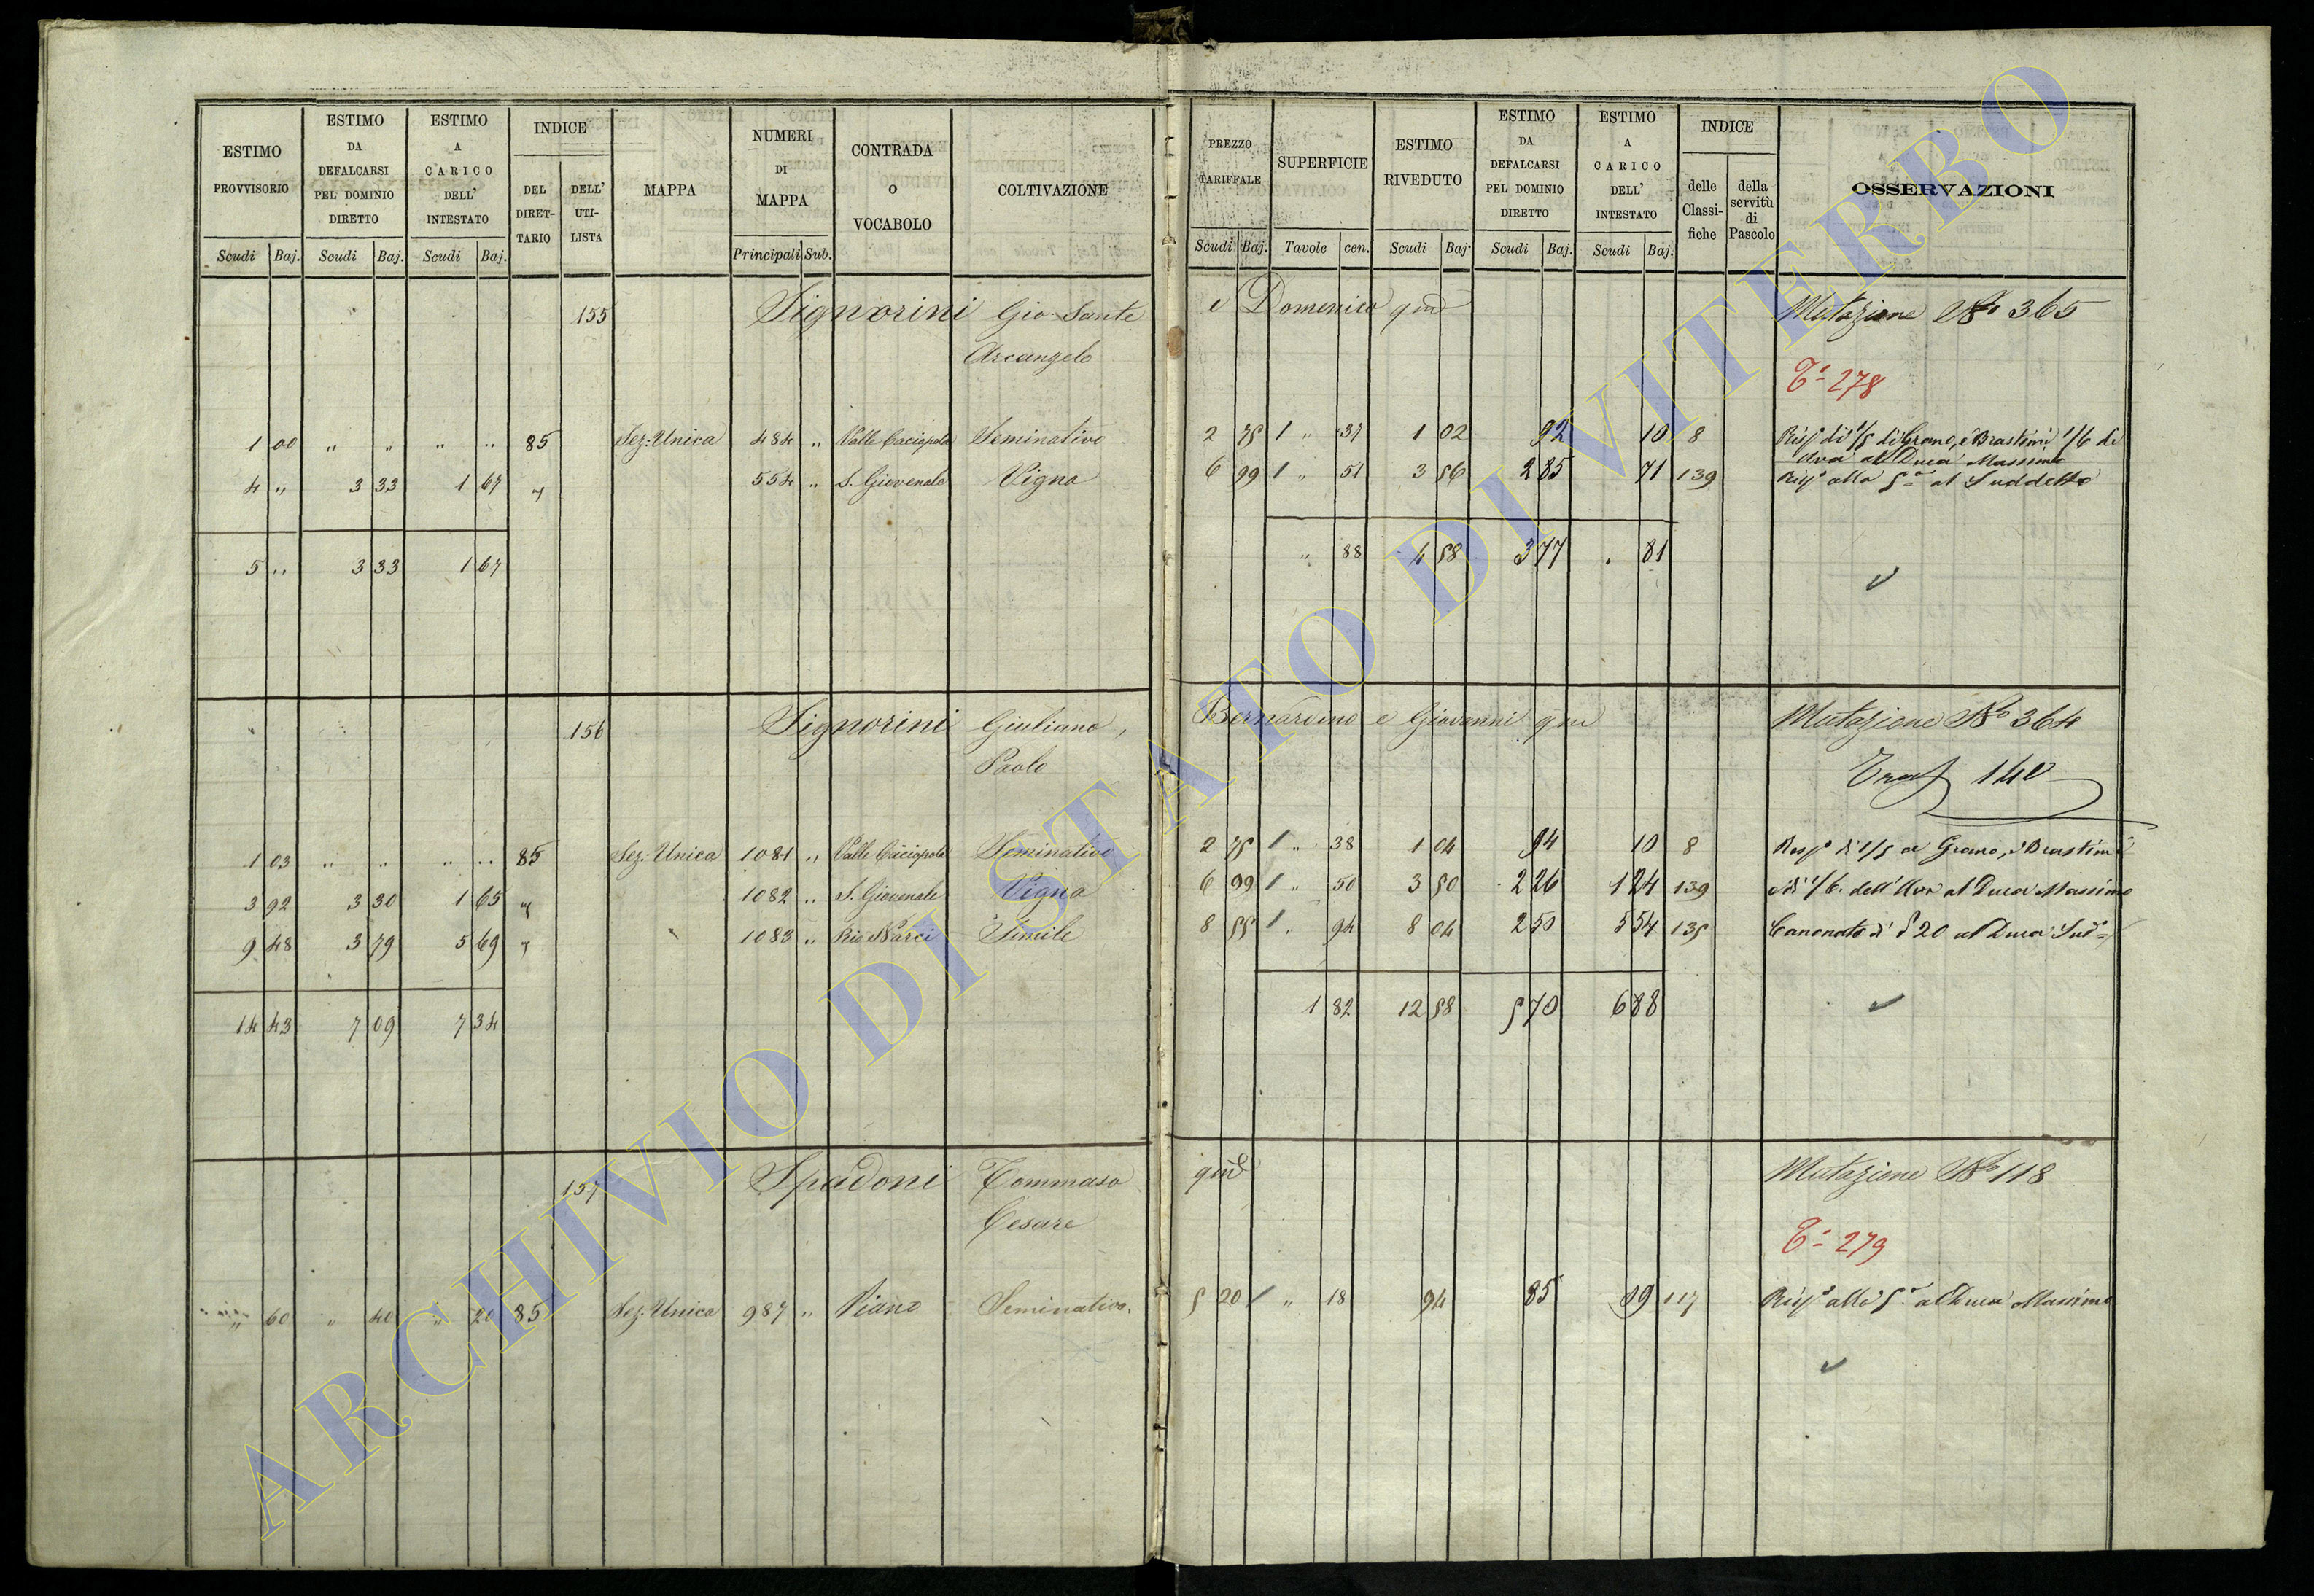 ESTIMO PROVVISORIO | ESTIMO DA DEFALCARSI PEL DOMINIO DIRETTO | ESTIMO A CARICO DELL' INTESTATO | INDICE DEL DIRET-TARIO | DELL' UTI-LISTA | MAPPA | NUMERI DI MAPPA | CONTRADA O VOCABOLO | COLTIVAZIONE | PREZZO TARIFFALE | SUPERFICIE | ESTIMO RIVEDUTO | ESTIMO DA DEFALCARSI PEL DOMINIO DIRETTO | ESTIMO A CARICO DELL' INTESTATO | INDICE delle Classi-fiche | della servitù di Pascolo | OSSERVAZIONI
Scudi Baj. Scudi Baj. Scudi Baj. Principali Sub. Scudi Baj. Tavole cen. Scudi Baj. Scudi Baj. Scudi Baj.
155 Signorini Gio Sante e Domenico qm Mutazione No 365
Arcangelo
Ta 278
1 00 " " " " 85 Sez: Unica 484 " Valle Caciopola Seminativo 2 75 1 " 37 1 02 92 10 8 Risp di 1/5 di Grano, e Brastimi 1/6 di
Uva al Duca Massimo
4 " 3 33 1 67 " 554 " S. Giovenale Vigna 6 99 1 " 51 3 56 2 85 71 139 Risp alla 5a al Suddetto
5 " 3 33 1 67 " 88 4 58 3 77 . 81
156 Signorini Giuliano, Bernardino e Giovanni qm Mutazione No 364
Paolo
Trasf 140
1 03 " " " " 85 Sez: Unica 1081 " Valle Caciopola Seminativo 2 75 1 " 38 1 04 94 10 8 Risp di 1/5 di Grano, e Brastimi
3 92 3 30 1 65 " 1082 " S. Giovenale Vigna 6 99 1 " 50 3 50 2 26 1 24 139 e di 1/6 dell'Uva al Duca Massimo
9 48 3 79 5 69 " 1083 " Rio Narci Simile 8 55 1 " 94 8 04 2 50 5 54 135 Canonato di 20 al Duca Sudo
14 43 7 09 7 34 1 82 12 58 5 70 6 88
157 Spadoni Tommaso qm Mutazione No 118
Cesare
Ta 279
" 60 " 40 " 20 85 Sez: Unica 987 " Piano Seminativo 5 20 1 " 18 94 85 09 117 Risp alla 5a al Duca Massimo
ARCHIVIO DI STATO DI VITERBO